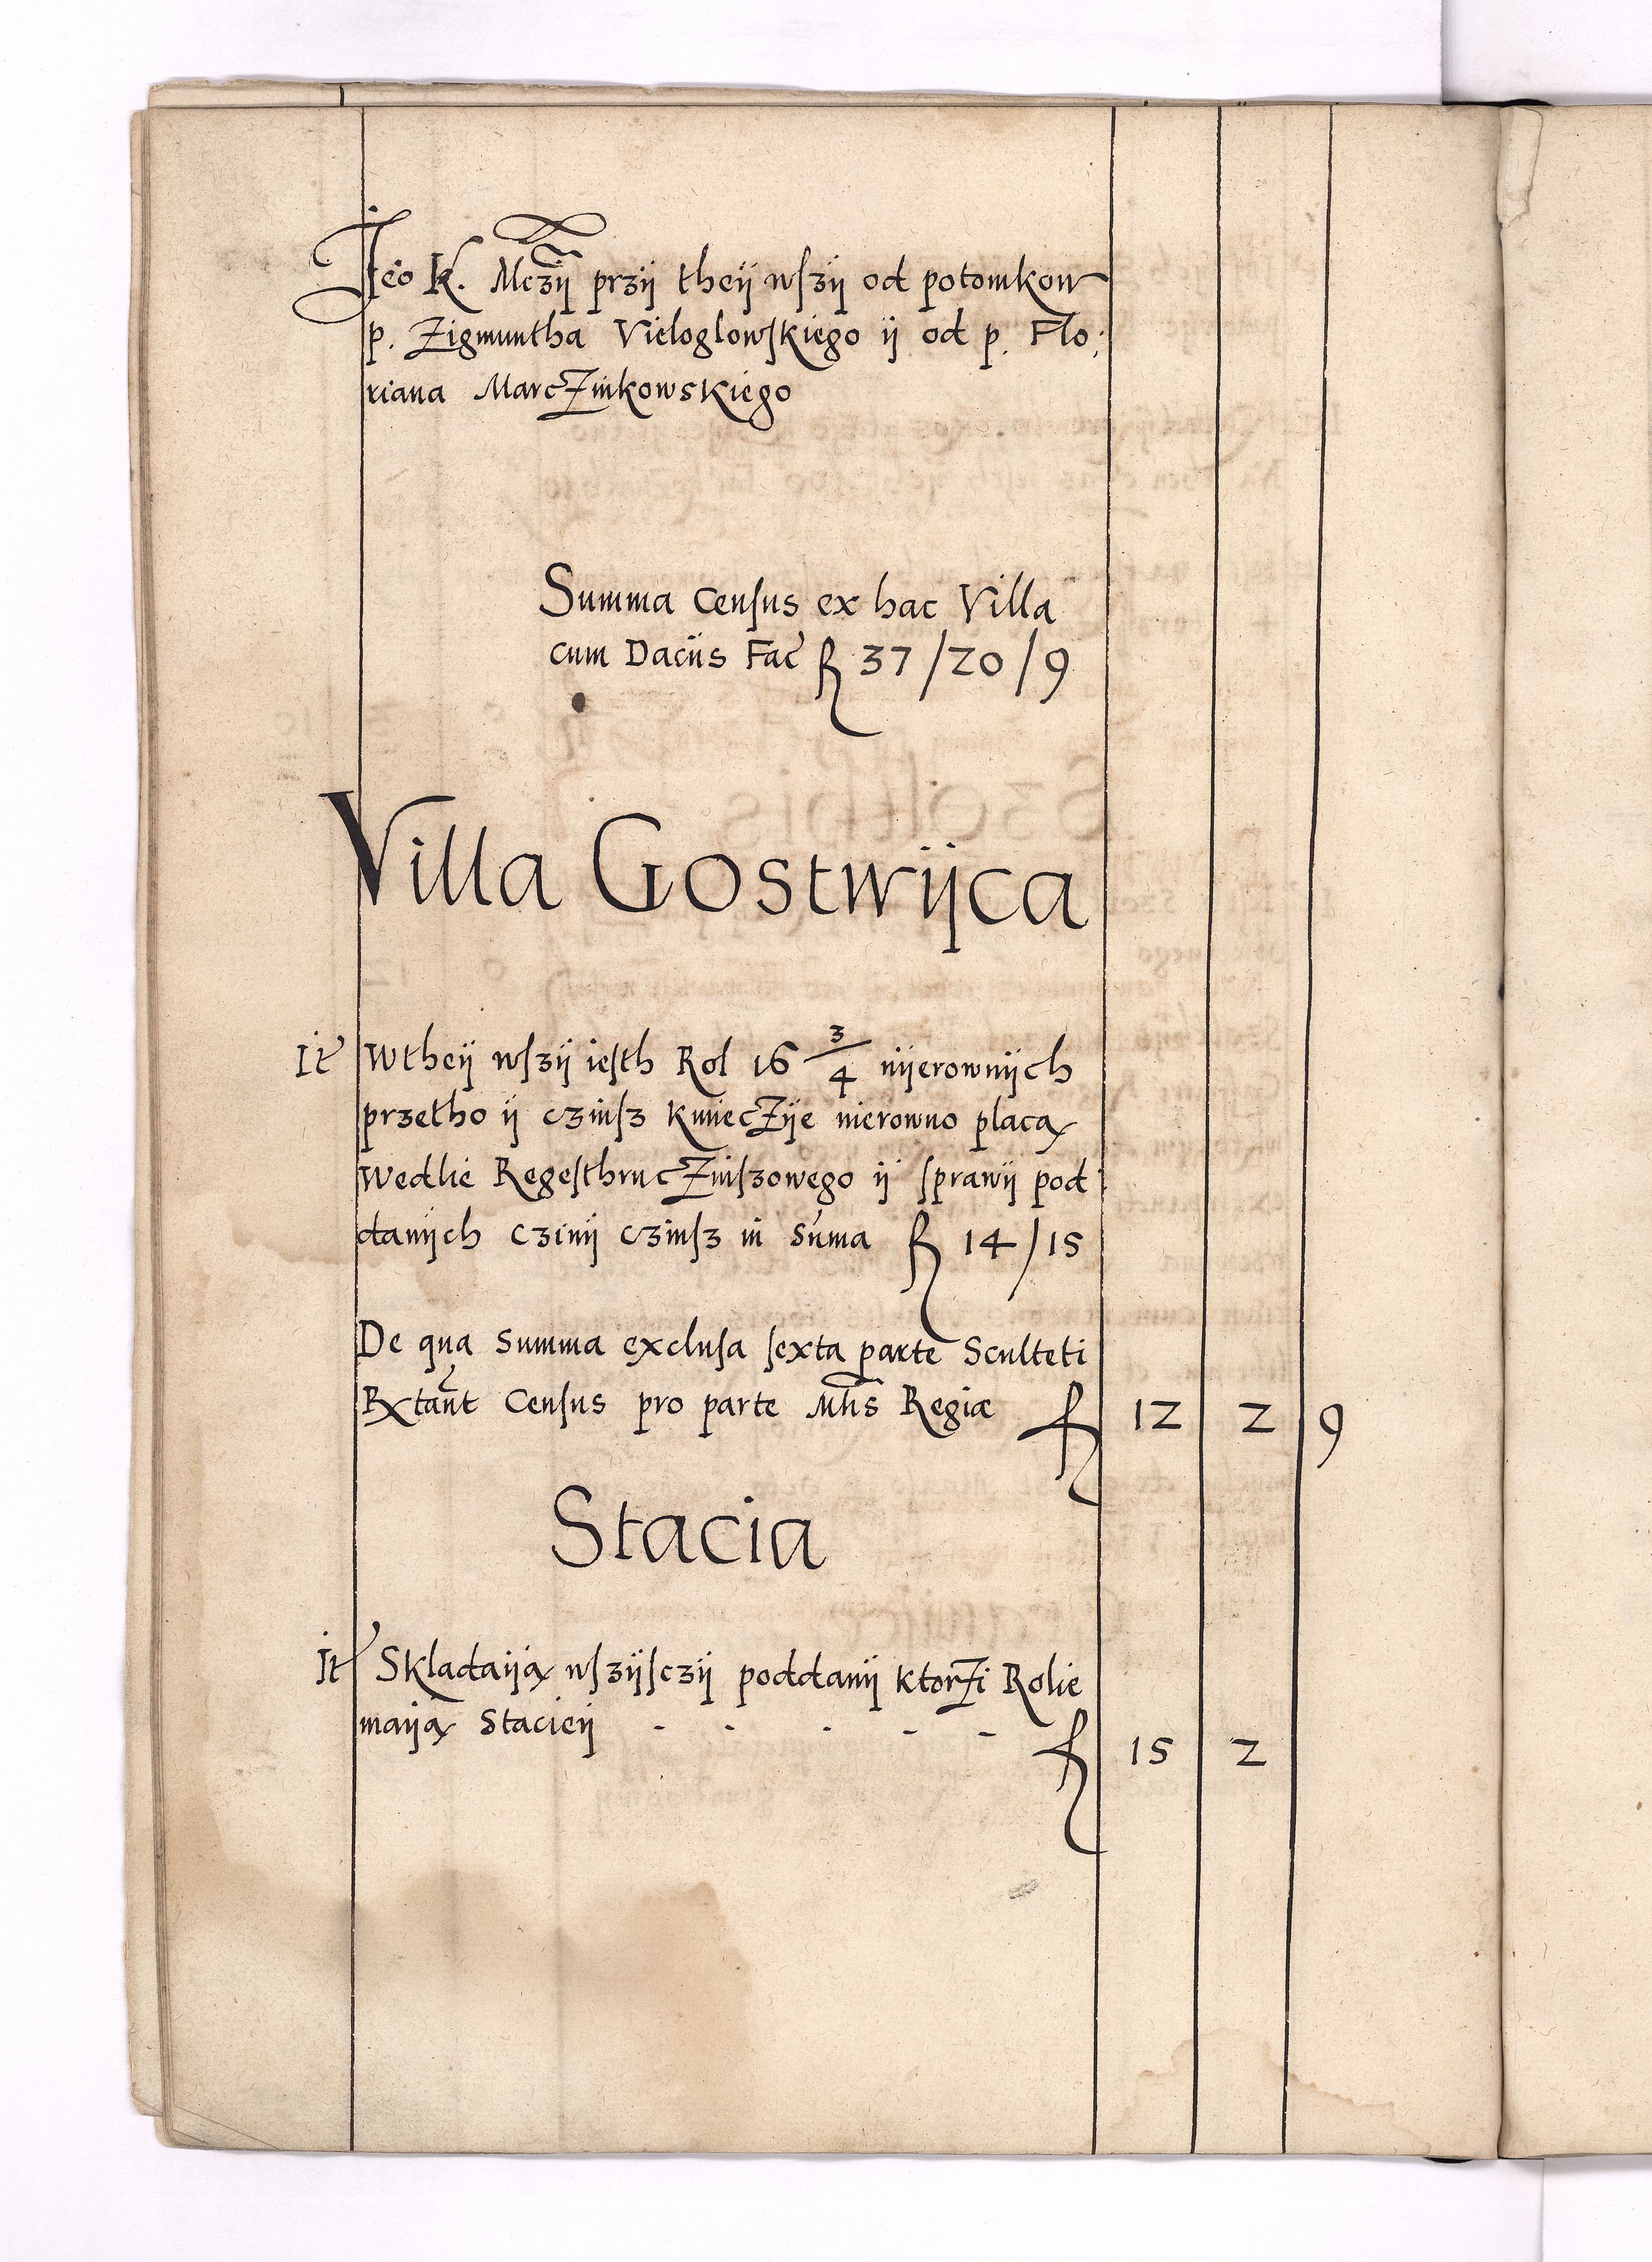 Jeo K. Mczij przij theij wſzij od potomkow
p. Zigmuntha Vieloglowſkiego ij od p. Flo:
riana MarcZinkowskiego
Summa Cenſus ex hac Villa
cum Daciis Fac f 37/20/9
Villa Gostwijca
It Wtheij wſzij ieſth Rol 16 3/4 nijerownijch
przetho ij czinſz kmiecZije nierowno placą
Wedlie RegeſthrucZinſzowego ij ſprawij pod
danijch czinij czinſz in Suma f 14/15
De qua Summa excluſa ſexta parte Sculteti
Extant Cenſus pro parte Mtis Regiæ f 12 2 9
Stacia
It Skladaiją wſzijſczij poddanij ktorZi Rolie
maiją Stacieij - - - - - f 15 2